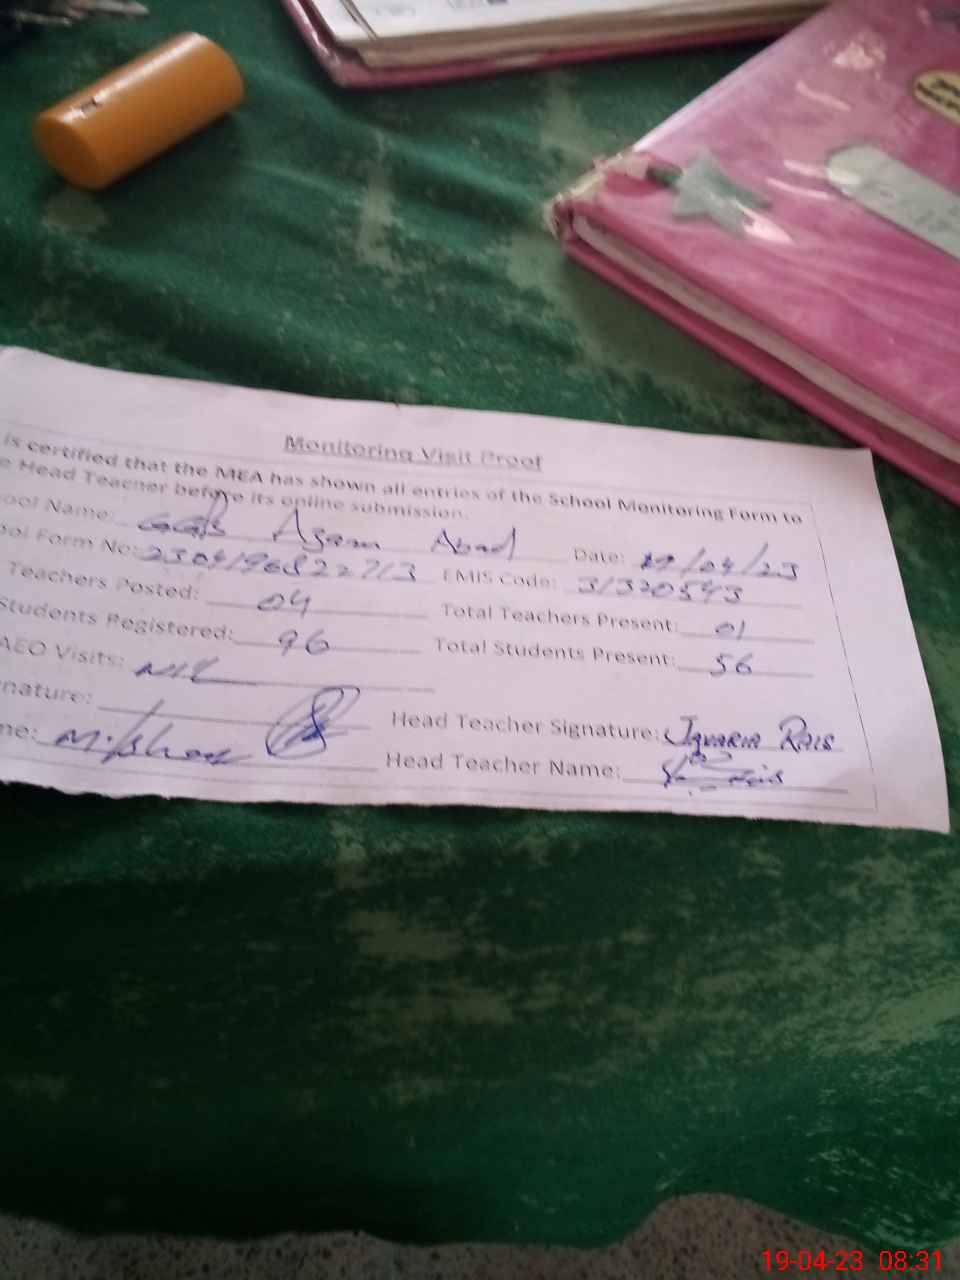 Monitoring Visit Proof
is certified that the MEA has shown all entries of the School Monitoring Form to
e Head Teacher before its online submission.
ool Name: GGPS Azam Abad Date: 19/04/23
ool Form No: 2304196822713 EMIS Code: 31320543
Teachers Posted: 04 Total Teachers Present: 01
Students Registered: 96 Total Students Present: 56
AEO Visits: NIL
nature: Head Teacher Signature: JAVARIA RAIS
me: Head Teacher Name:
19-04-23 08:31